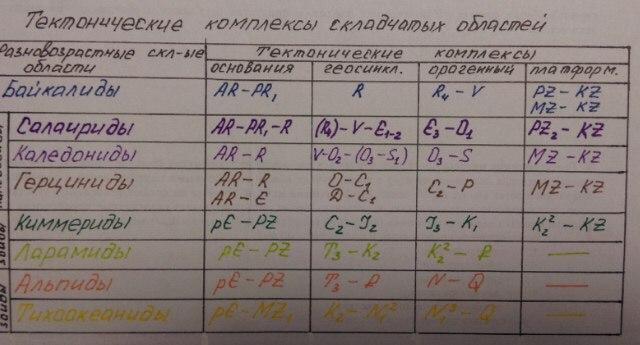 Тектонические комплексы складчатых областей
Разновозрастные скл-ые области Тектонические комплексы
основания геосинкл. орогенный платформ.
Байкалиды AR-PR₁ R R₄-V PZ-KZ
MZ-KZ
Салаириды AR-PR₁-R (R₄)-V-Є₁₋₂ Є₃-O₁ PZ₂-KZ
Каледониды AR-R V-O₂-(O₃-S₁) O₃-S MZ-KZ
Герциниды AR-R O-C₁ C₂-P MZ-KZ
AR-Є D-C₁
Киммериды pЄ-PZ C₂-J₂ J₃-K₁ K₂²-KZ
Ларамиды pЄ-PZ T₃-K₂ K₂²-₽ —
Альпиды pЄ-PZ T₃-₽ N-Q —
Тихоокеаниды pЄ-MZ₁ K₂-N₁² N₁³-Q —
зоиды
зоиды